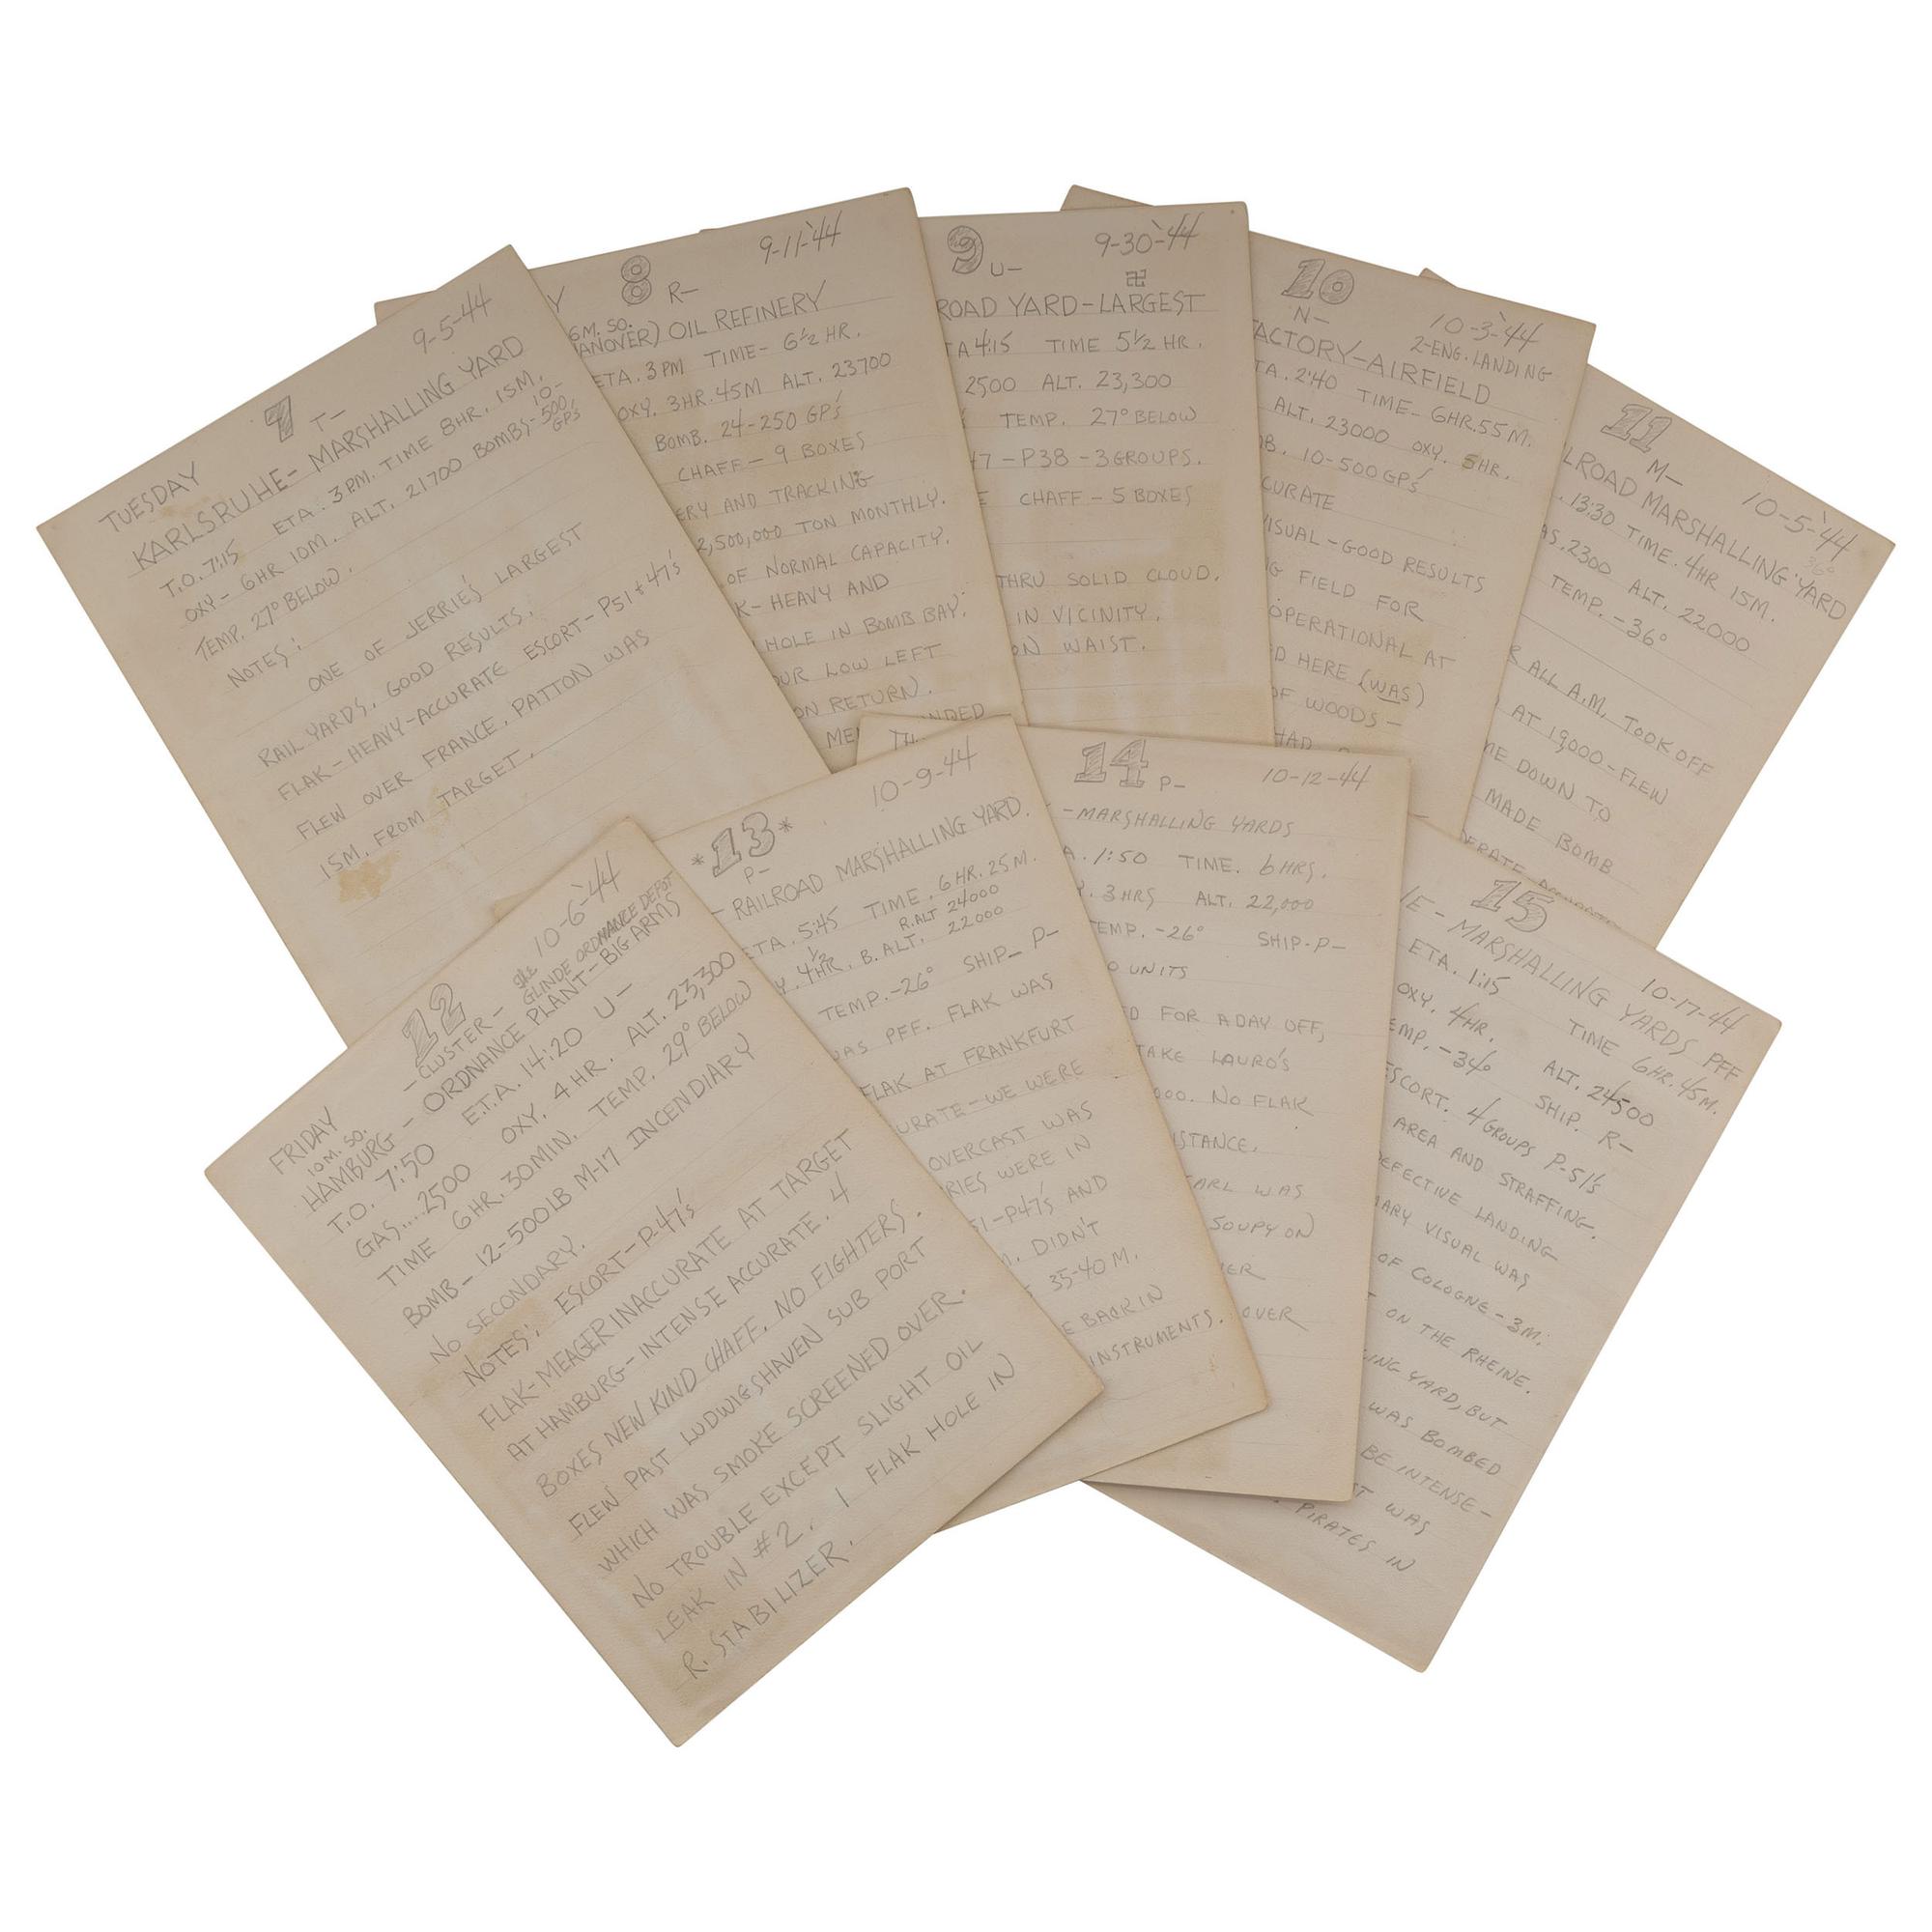 9-5-44
7 T-
TUESDAY
KARLSRUHE- MARSHALLING YARD
T.O. 7:15 ETA. 3PM. TIME 8HR. 15M.
OXY- 6HR 10M. ALT. 21700 BOMBS- 10-500 GP'S
TEMP. 27° BELOW.
NOTES:
ONE OF JERRIE'S LARGEST
RAIL YARDS. GOOD RESULTS.
FLAK-HEAVY-ACCURATE ESCORT-P51 & 47'S
FLEW OVER FRANCE. PATTON WAS
15M. FROM TARGET.
9-11-'44
8 R-
6M. SO.
OIL REFINERY
ETA. 3PM TIME- 6½ HR.
OXY. 3HR. 45M ALT. 23700
BOMB. 24-250 GP'S
CHAFF- 9 BOXES
AND TRACKING
2,500,000 TON MONTHLY.
OF NORMAL CAPACITY.
HEAVY AND
HOLE IN BOMB BAY.
OUR LOW LEFT
ON RETURN).
9-30-'44
9 U-
卍
ROAD YARD-LARGEST
4:15 TIME 5½ HR.
2500 ALT. 23,300
TEMP. 27° BELOW
47-P38-3 GROUPS.
CHAFF-5 BOXES
THRU SOLID CLOUD.
IN VICINITY.
ON WAIST.
10
N-
10-3-'44
2-ENG. LANDING
FACTORY-AIRFIELD
ETA. 2:40 TIME- 6HR. 55M.
ALT. 23000 OXY. 5HR.
10-500 GP'S
VISUAL-GOOD RESULTS
FIELD FOR
OPERATIONAL AT
HERE (WAS)
OF WOODS-
HAD
11
M-
10-5-'44
36°
RAILROAD MARSHALLING YARD
13:30 TIME. 4HR 15M.
GAS. 2300 ALT. 22000
TEMP. -36°
ALL A.M. TOOK OFF
AT 19,000-FLEW
DOWN TO
MADE BOMB
12
10-6-'44
-CLUSTER- GLINDE ORDNANCE DEPOT
FRIDAY
10M. SO.
HAMBURG- ORDNANCE PLANT-BIG ARMS
T.O. 7:50 E.T.A. 14:20 U-
GAS...2500 OXY. 4HR. ALT. 23,300
TIME 6HR. 30MIN. TEMP. 29° BELOW
BOMB- 12-500LB M-17 INCENDIARY
NO SECONDARY.
NOTES: ESCORT-P-47'S
FLAK-MEAGER INACCURATE AT TARGET
AT HAMBURG-INTENSE ACCURATE. 4
BOXES NEW KIND CHAFF. NO FIGHTERS.
FLEW PAST LUDWIGSHAVEN SUB PORT
WHICH WAS SMOKE SCREENED OVER.
NO TROUBLE EXCEPT SLIGHT OIL
LEAK IN #2. 1 FLAK HOLE IN
R. STABILIZER.
10-9-44
*13*
P-
- RAILROAD MARSHALLING YARD.
ETA. 5:45 TIME. 6HR. 25M.
R.ALT 24000
4½ HR. B.ALT. 22000
TEMP. -26° SHIP- P-
WAS PFF. FLAK WAS
FLAK AT FRANKFURT
-WE WERE
OVERCAST WAS
WERE IN
-P47'S AND
DIDN'T
35-40 M.
BACK IN
INSTRUMENTS.
14 P-
10-12-44
-MARSHALLING YARDS
1:50 TIME. 6HRS.
3HRS ALT. 22,000
TEMP. -26° SHIP-P-
UNITS
FOR A DAY OFF,
TAKE LAURO'S
NO FLAK
WAS
SOUPY ON
OVER
15
10-17-44
- MARSHALLING YARDS PFF
ETA. 1:15 TIME 6HR. 45M.
OXY. 4HR. ALT. 24500
TEMP. -34° SHIP. R-
ESCORT. 4 GROUPS P-51'S
AREA AND STRAFFING.
DEFECTIVE LANDING
VISUAL WAS
OF COLOGNE-3M.
ON THE RHEINE.
YARD, BUT
WAS BOMBED
BE INTENSE-
WAS
PIRATES IN